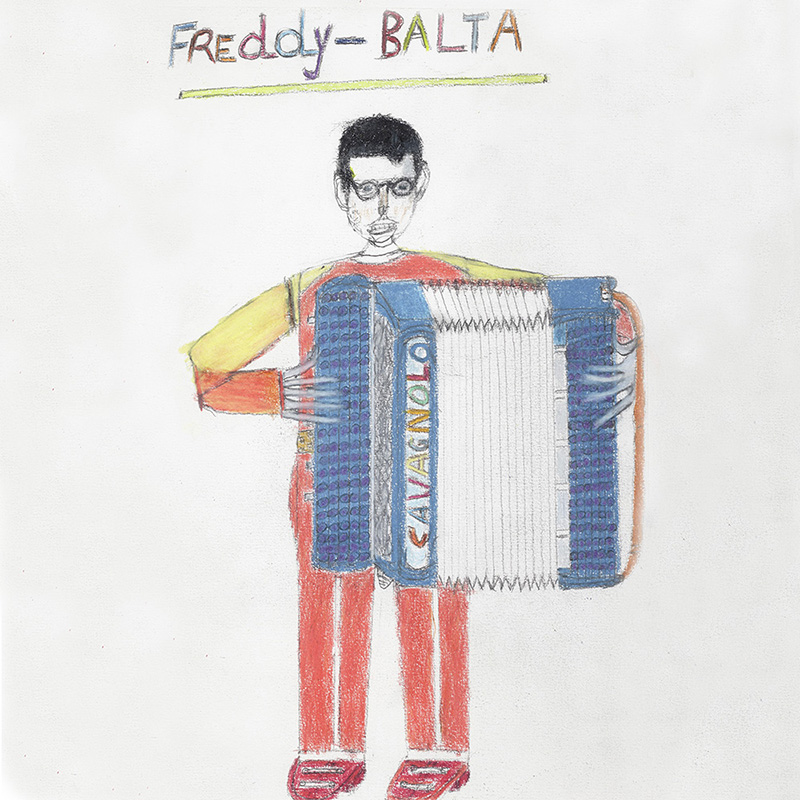 FREddy-BALTA
CAVAGNOLO